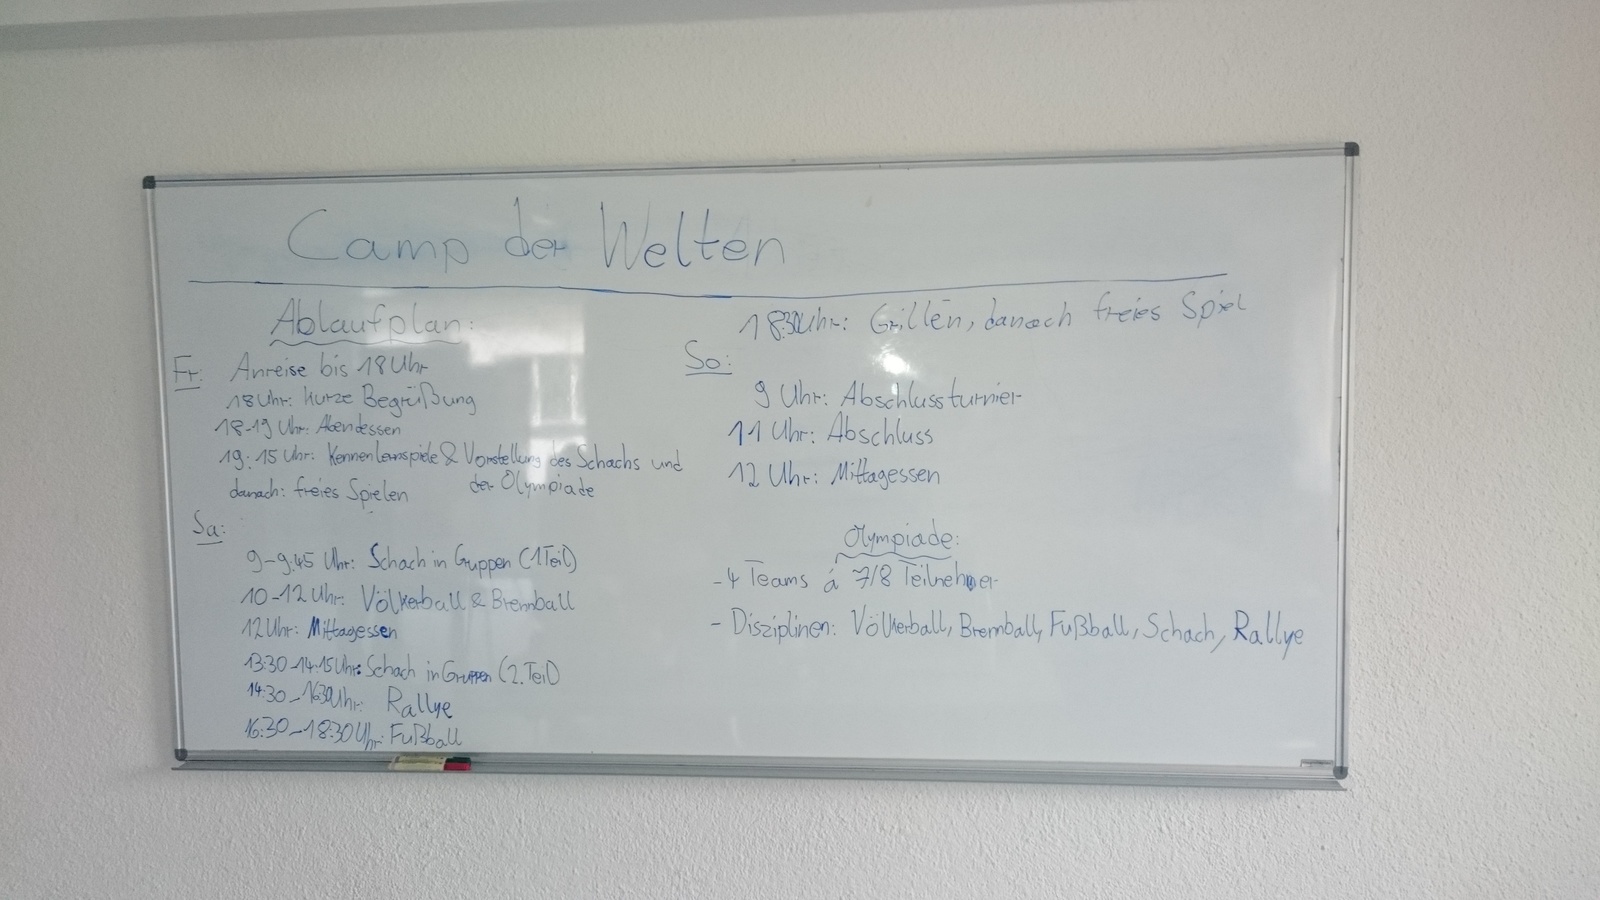 Camp der Welten
Ablaufplan:
Fr: Anreise bis 18 Uhr
18 Uhr: kurze Begrüßung
18-19 Uhr: Abendessen
19:15 Uhr: Kennenlernspiele & Vorstellung des Schachs und
der Olympiade
danach: freies Spielen
Sa:
9-9:45 Uhr: Schach in Gruppen (1Teil)
10-12 Uhr: Völkerball & Brennball
12 Uhr: Mittagessen
13:30-14:15 Uhr: Schach in Gruppen (2.Teil)
14:30-16:30 Uhr: Rallye
16:30-18:30 Uhr: Fußball
18:30 Uhr: Grillen, danach freies Spiel
So:
9 Uhr: Abschlussturnier
11 Uhr: Abschluss
12 Uhr: Mittagessen
Olympiade:
- 4 Teams á 7/8 Teilnehmer
- Disziplinen: Völkerball, Brennball, Fußball, Schach, Rallye